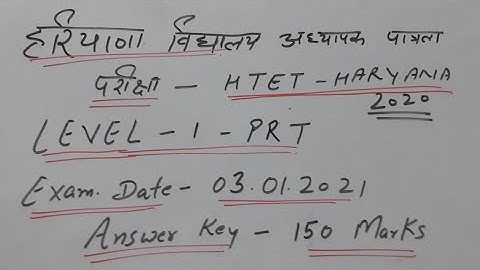 हरियाणा विद्यालय अध्यापक पात्रता
परीक्षा - HTET - HARYANA
2020
LEVEL - 1 - PRT
Exam. Date - 03.01.2021
Answer Key - 150 Marks